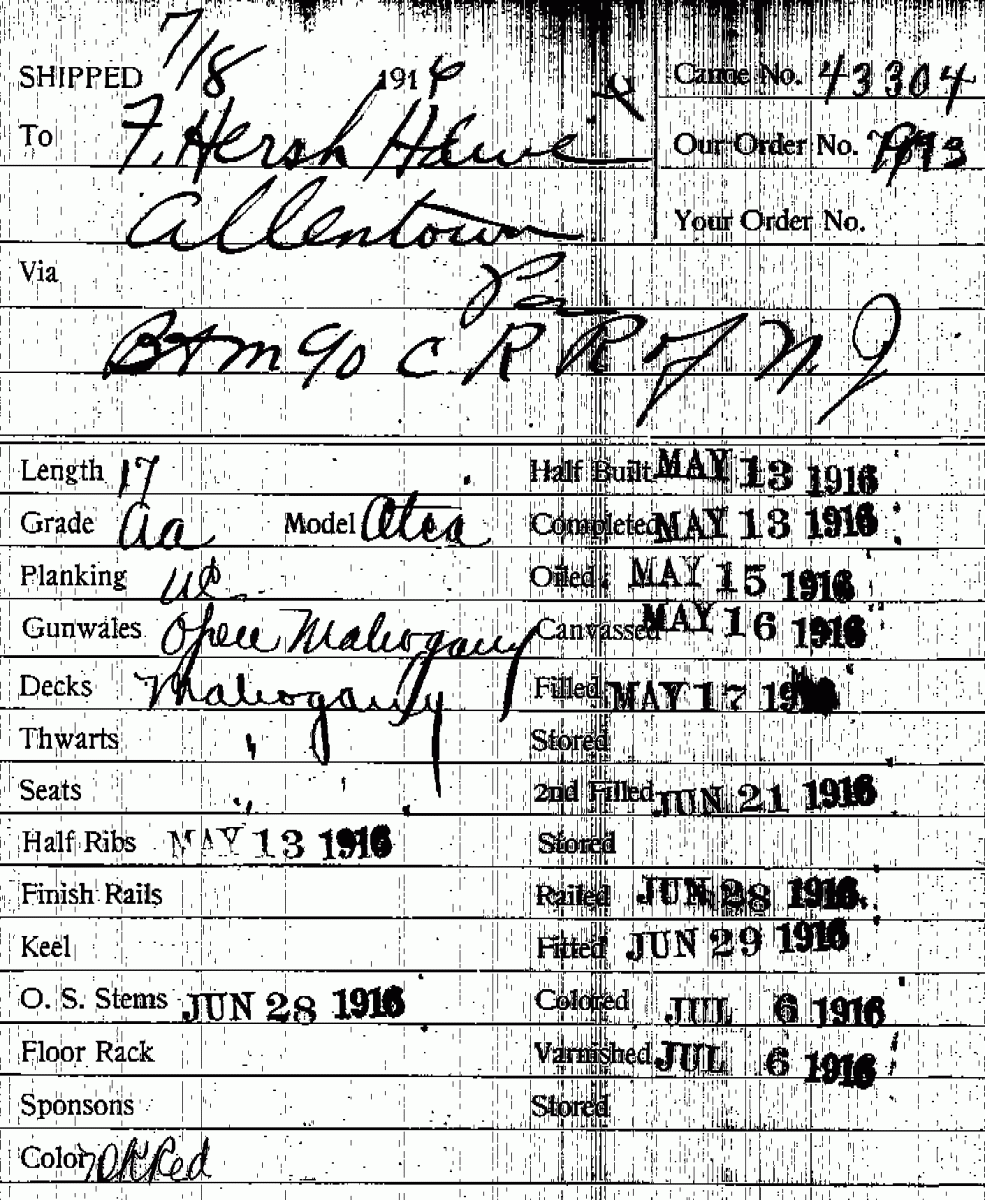 SHIPPED 7/8 1916
Canoe No. 43304
To F. Hersh Hdwe
Our Order No.
Allentown
Your Order No.
Via
Pa
B & M c/o C R R of N J
Length 17
Half Built MAY 13 1916
Grade Aa Model Otca
Completed MAY 13 1916
Planking WC
Oiled MAY 15 1916
Gunwales Open Mahogany
Canvassed MAY 16 1916
Decks Mahogany
Filled MAY 17 1916
Thwarts "
Stored
Seats "
2nd Filled JUN 21 1916
Half Ribs MAY 13 1916
Stored
Finish Rails
Railed JUN 28 1916
Keel
Fitted JUN 29 1916
O. S. Stems JUN 28 1916
Colored JUL 6 1916
Floor Rack
Varnished JUL 6 1916
Sponsons
Stored
Color Dk Red